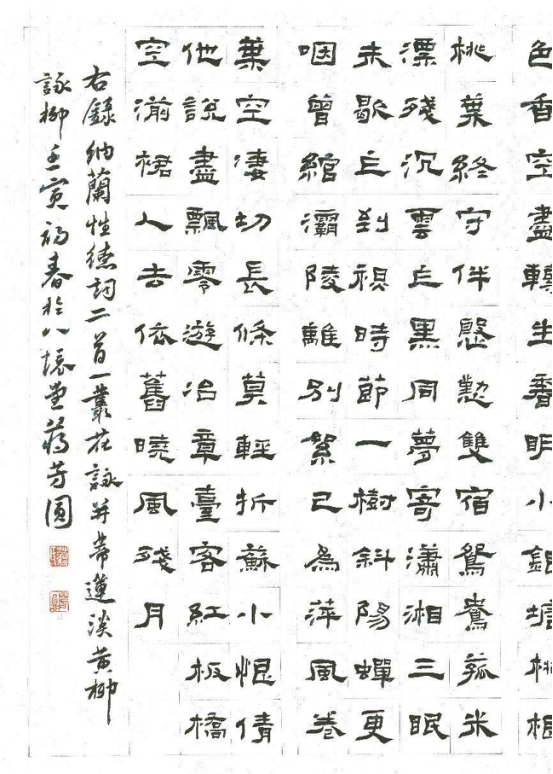 色香空盡轉生香明小銀塘桃根
桃葉終守伴慇懃雙宿鴛鴦菰米
漂殘沉雲乍黑同夢寄瀟湘三眠
未歇乍到秋時節一樹斜陽蟬更
咽曾綰灞陵離別絮已為萍風卷
葉空淒切長條莫輕折蘇小恨倩
他說盡飄零遊冶章臺客紅板橋
空湔裙人去依舊曉風殘月
右錄納蘭性德詞二首一叢花詠并蒂蓮淡黃柳
詠柳壬寅初春於八懷堂蔣芳圓